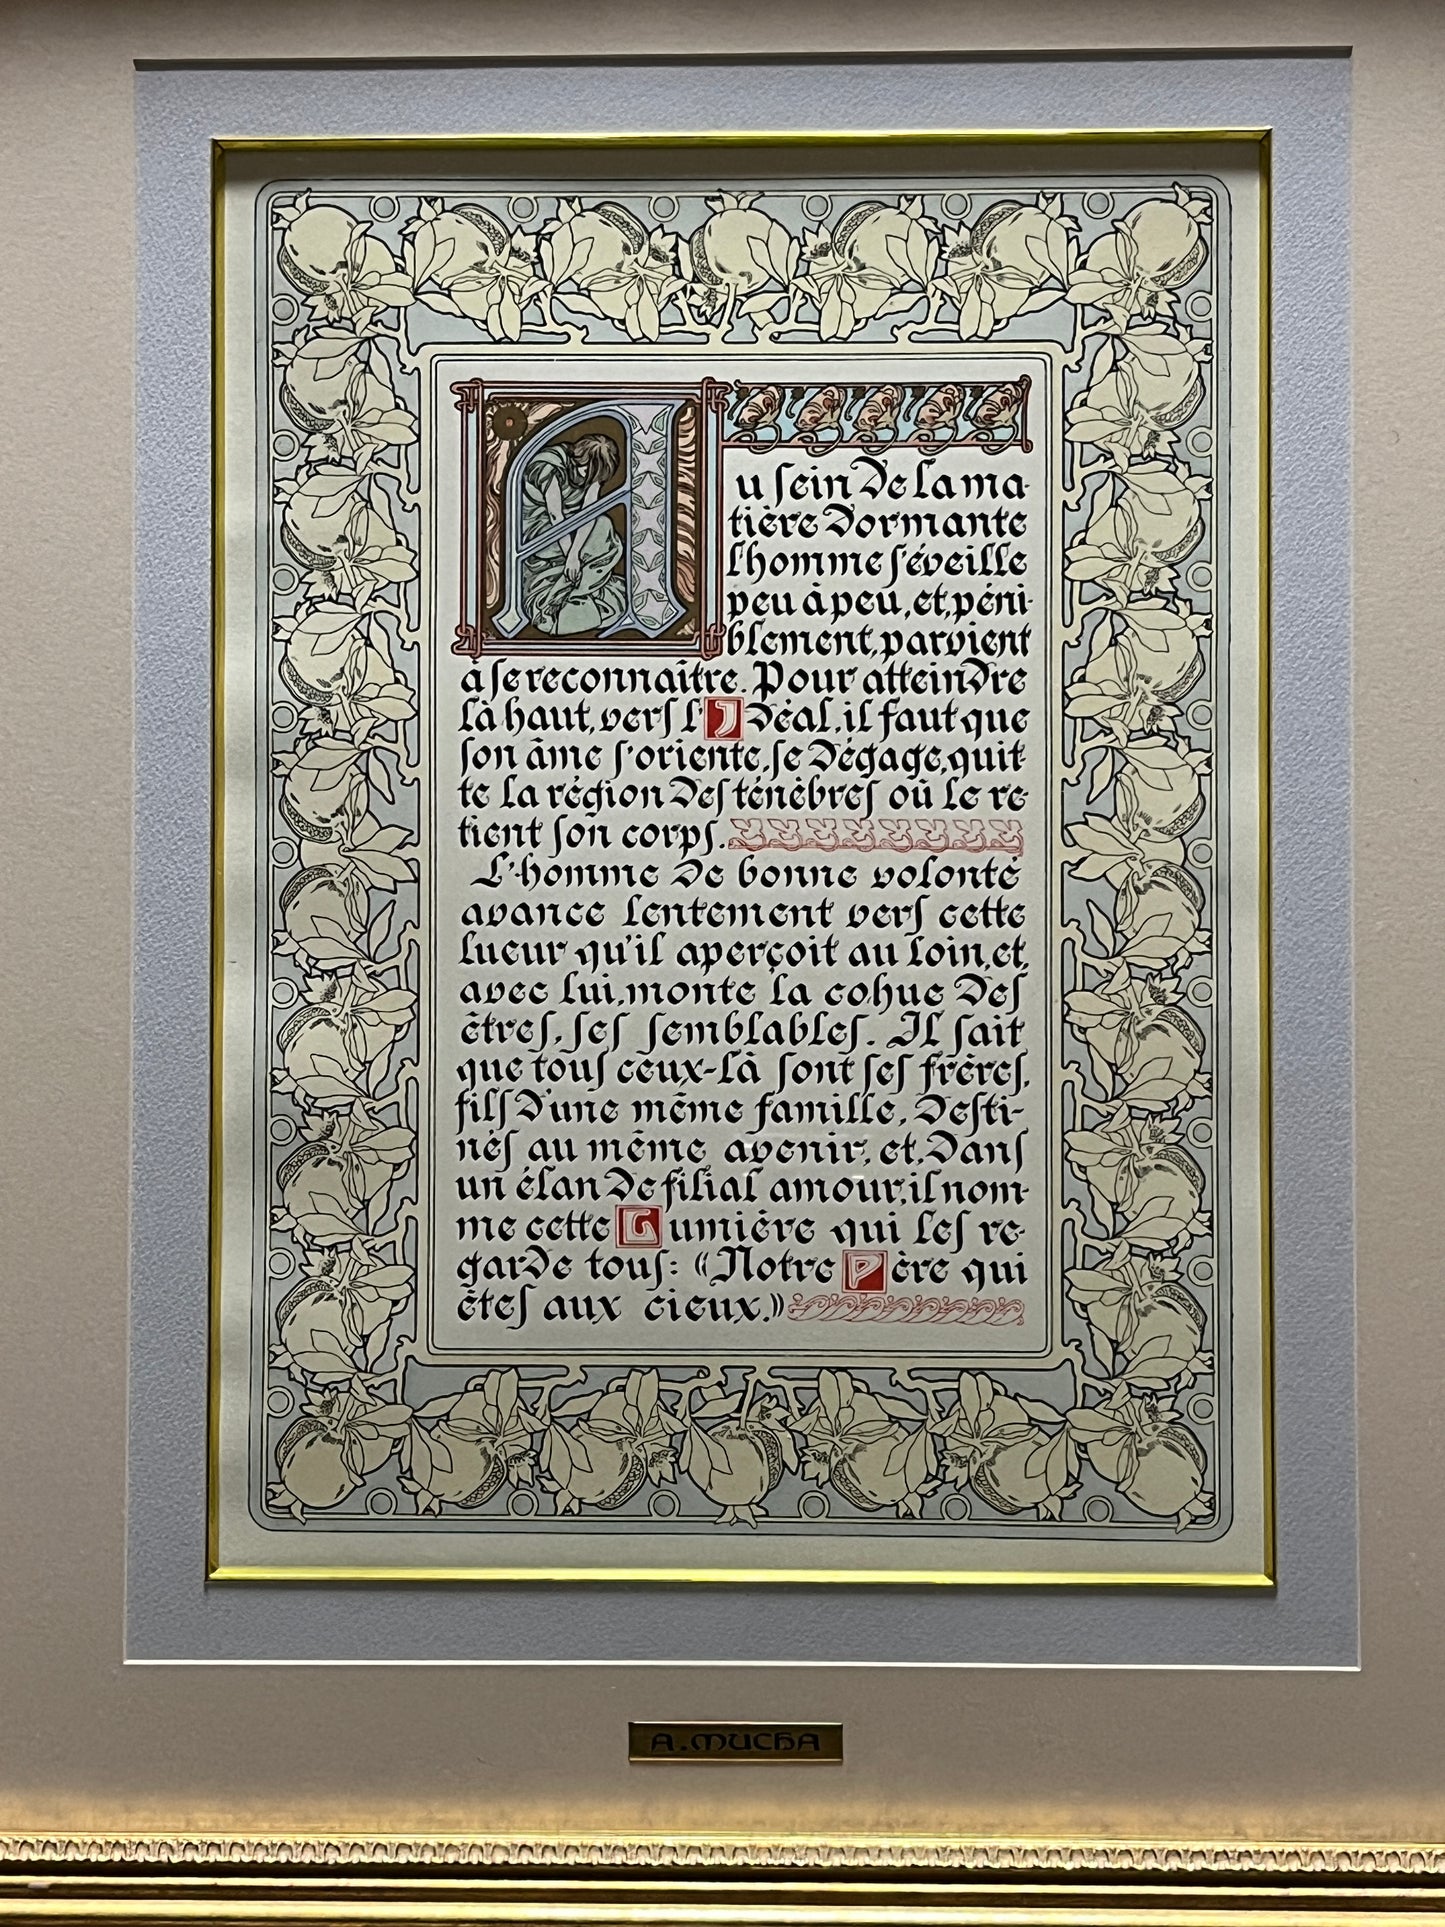 Au sein de la ma-
tière dormante
l'homme s'éveille
peu à peu, et, péni-
blement, parvient
à se reconnaître. Pour atteindre
là haut, vers l'Idéal, il faut que
son âme s'oriente, se dégage, quit-
te la région des ténèbres où le re-
tient son corps.
L'homme de bonne volonté
avance lentement vers cette
lueur qu'il aperçoit au loin, et,
avec lui, monte la cohue des
êtres, ses semblables. Il sait
que tous ceux-là sont ses frères,
fils d'une même famille, desti-
nés au même avenir, et, dans
un élan de filial amour, il nom-
me cette Lumière qui les re-
garde tous: «Notre Père qui
êtes aux cieux.»
A. MUCHA